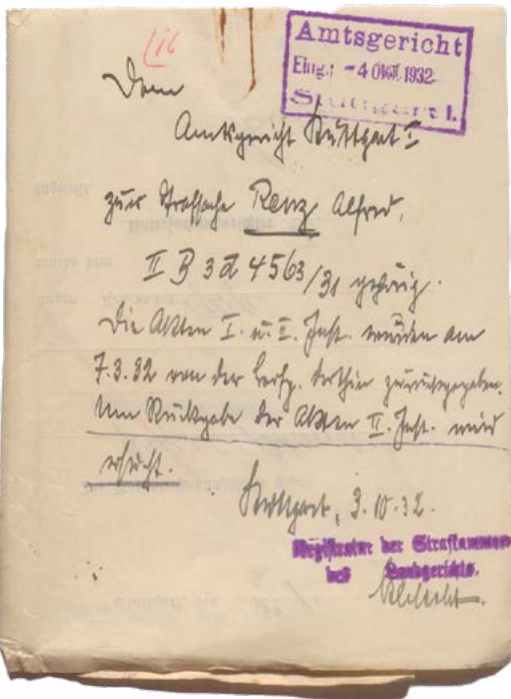 Amtsgericht
Eing.: -4 OKT. 1932
Stuttgart I.
Dem
Amtsgericht Stuttgart I
zur Strafsache Renz Alfred,
II B 3 4563/31 gehörig.
Die Akten I. u. II. Inst. wurden am
7.3.32 von der dorthin zurückgegeben.
Um Rückgabe der Akten II. Inst. wird
ersucht.
Stuttgart, 3.10.32.
Registratur der Strafkammer
des Landgerichts.